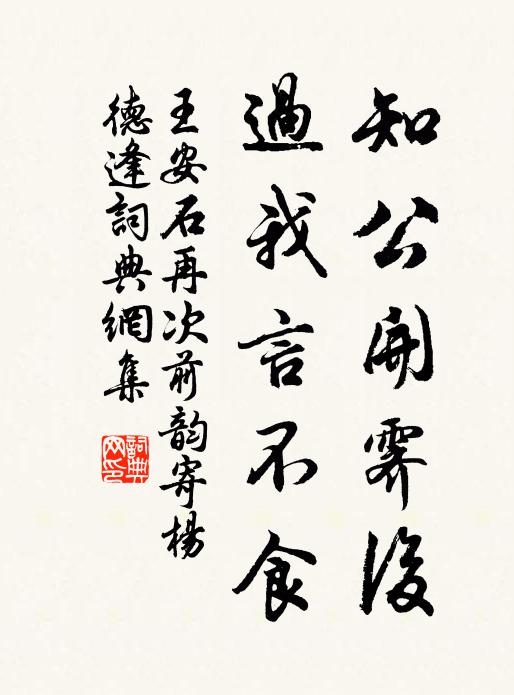 知公開霽後
過我言不食
王安石再次前韵寄楊
德逢詞典網集
詞典網印